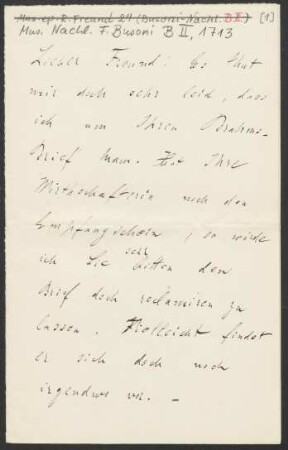 Mus. ep. R. Freund 24 (Busoni-Nachl. B II) [1]
Mus. Nachl. F. Busoni B II, 1713
Lieber Freund! Es thut
mir doch sehr leid, dass
ich um Ihren Brahms-
Brief kam. Hat Ihre
Wirthschafterin noch den
Empfangschein, so würde
ich Sie sehr bitten den
Brief doch reclamiren zu
lassen. Vielleicht findet
er sich doch noch
irgendwo vor. –